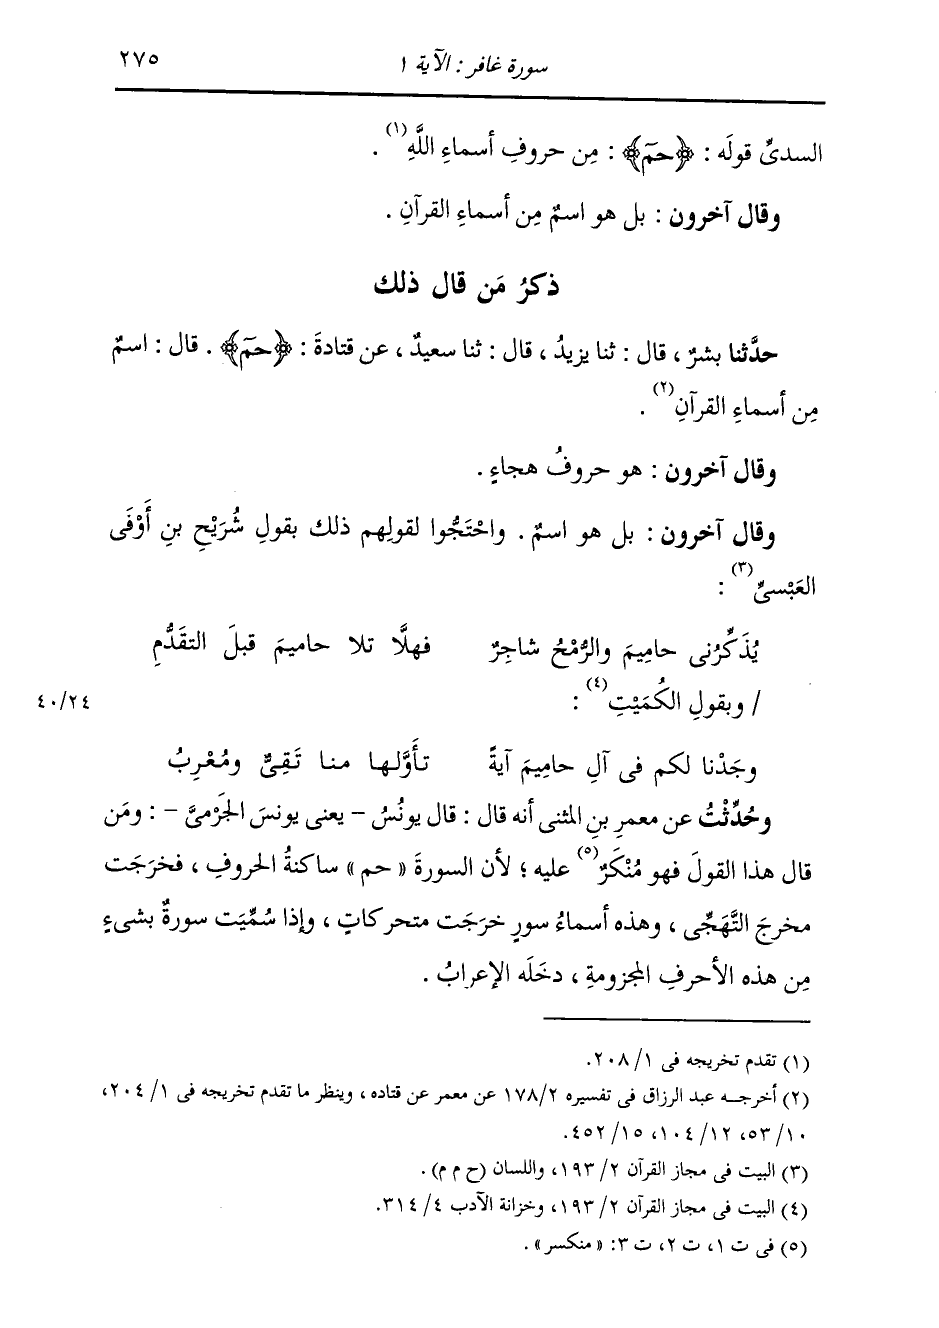 سورة غافر : الآية ١ ٢٧٥
السدىِّ قولَه : ﴿حمٓ﴾ : مِن حروفِ أسماءِ اللَّهِ(١) .
وقال آخرون : بل هو اسمٌ مِن أسماءِ القرآنِ .
ذكرُ مَن قال ذلك
حدَّثنا بشرٌ ، قال : ثنا يزيدُ ، قال : ثنا سعيدٌ ، عن قتادةَ : ﴿حمٓ﴾ . قال : اسمٌ
مِن أسماءِ القرآنِ(٢) .
وقال آخرون : هو حروفُ هجاءٍ .
وقال آخرون : بل هو اسمٌ . واحْتَجُّوا لقولِهم ذلك بقولِ شُرَيْحِ بنِ أَوْفَى
العَبْسىِّ(٣) :
يُذَكِّرُنى حامِيمَ والرُّمْحُ شاجِرٌ فهلَّا تلا حاميمَ قبلَ التقَدُّمِ
/ وبقولِ الكُمَيْتِ(٤) : ٤٠/٢٤
وجَدْنا لكم فى آلِ حامِيمَ آيةً تأَوَّلها منا تَقِىٌّ ومُعْرِبُ
وحُدِّثْتُ عن معمرِ بنِ المثنى أنه قال : قال يونُسُ – يعنى يونسَ الجَرْمىَّ – : ومَن
قال هذا القولَ فهو مُنْكَرٌ(٥) عليه ؛ لأن السورةَ « حم » ساكنةُ الحروفِ ، فخرَجَت
مخرجَ التَّهَجِّى ، وهذه أسماءُ سورٍ خرَجَت متحركاتٍ ، وإذا سُمِّيَت سورةٌ بشىءٍ
مِن هذه الأحرفِ المجزومةِ ، دخَلَه الإعرابُ .
(١) تقدم تخريجه فى ١/ ٢٠٨.
(٢) أخرجه عبد الرزاق فى تفسيره ١٧٨/٢ عن معمر عن قتاده ، وينظر ما تقدم تخريجه فى ١/ ٢٠٤،
١٠/ ٥٣، ١٢/ ١٠٤، ١٥/ ٤٥٢.
(٣) البيت فى مجاز القرآن ٢/ ١٩٣، واللسان (ح م م) .
(٤) البيت فى مجاز القرآن ٢/ ١٩٣، وخزانة الأدب ٤/ ٣١٤.
(٥) فى ت ١، ت ٢، ت ٣: « منكسر » .